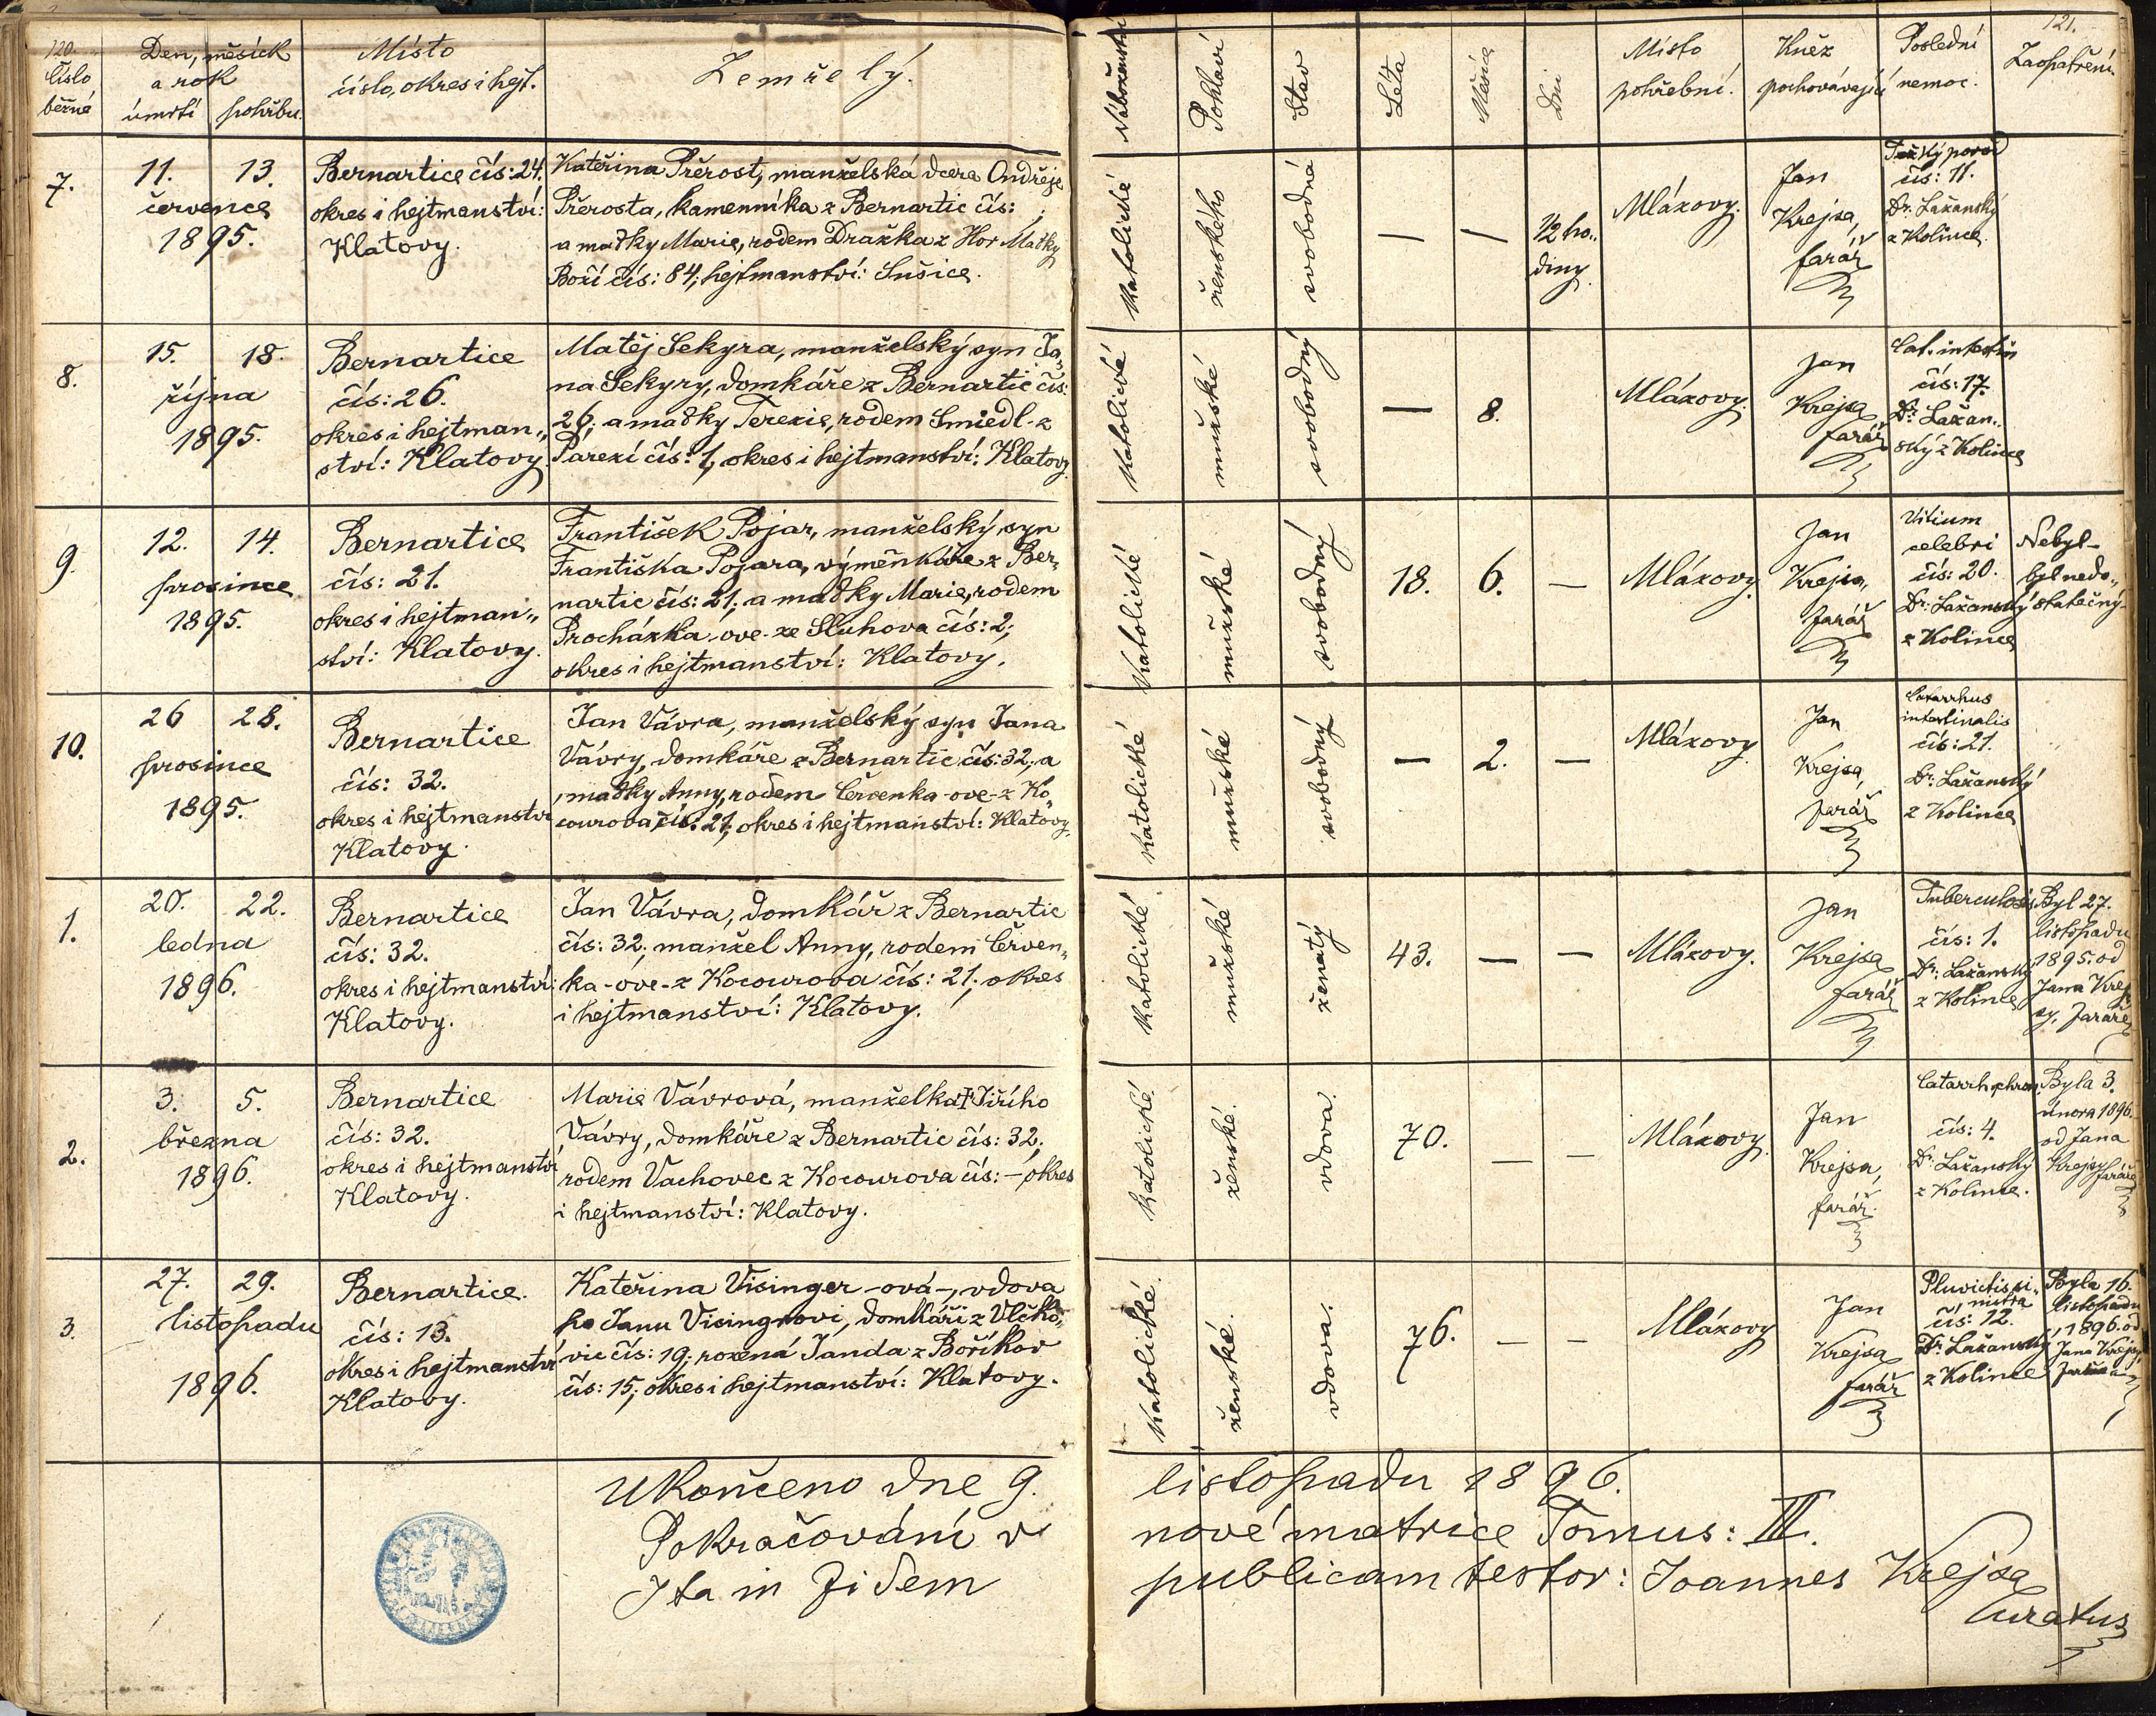 120.
Číslo běžné
Den, měsíc k a rok
úmrtí pohřbu.
Místo
číslo, okres i hejt.
Zemřelý.
Náboženství
Pohlaví
Stav
Léta
Měsíce
Dni
Místo pohřební.
Kněz pochovávající
Poslední nemoc.
121.
Zaopatření.
7.
11. 13.
července
1895.
Bernartice čís: 24.
okres i hejtmanství:
Klatovy.
Kateřina Přerost, manželská dcera Ondřeje
Přerosta, kamenníka z Bernartic čís: ;
a matky Marie, rodem Dražka z Hor Matky
Boží čís: 84; hejtmanství: Sušice.
Katolické
ženského
svobodná
— —
1/2 ho„
diny.
Mlázovy.
Jan
Krejsa,
farář
Těžký porod
čís: 11.
Dr. Lažanský
z Kolince.
8.
15. 18.
října
1895.
Bernartice
čís: 26.
okres i hejtman„
ství: Klatovy.
Matěj Sekyra, manželský syn Ja„
na Sekyry, domkáře z Bernartic čís:
26; a matky Terezie, rodem Smiedl z
Pařezí čís: 1, okres i hejtmanství: Klatovy.
Katolické
mužské
svobodný
— 8.
Mlázovy.
Jan
Krejsa
farář
Cat. intestin
čís: 17.
Dr: Lažan„
ský z Kolince
9.
12. 14.
prosince
1895.
Bernartice
čís: 21.
okres i hejtman„
ství: Klatovy.
František Pojar, manželský syn
Františka Pojara, výměnkáře z Ber„
nartic čís: 21; a matky Marie, rodem
Procházka -ove- ze Sluhova čís: 2;
okres i hejtmanství: Klatovy.
Katolické
mužské
svobodný
18. 6. —
Mlázovy.
Jan
Krejsa,
farář
Vitium
celebri
čís: 20.
Dr: Lažanský
z Kolince
Nebyl-
byl nedo„
statečný-
10.
26 28.
prosince
1895.
Bernartice
čís: 32.
okres i hejtmanství
Klatovy.
Jan Vávra, manželský syn Jana
Vávry, domkáře z Bernartic čís: 32; a
matky Anny, rodem Červenka -ove- z Ko„
courova čís: 21; okres i hejtmanství: Klatovy.
Katolické
mužské
svobodný
— 2. —
Mlázovy.
Jan
Krejsa,
farář
Catarrhus
intestinalis
čís: 21.
Dr: Lažanský
z Kolince
1.
20. 22.
ledna
1896.
Bernartice
čís: 32.
okres i hejtmanství:
Klatovy.
Jan Vávra, domkář z Bernartic
čís: 32; manžel Anny, rodem Červen„
ka -ove- z Kocourova čís: 21; okres
i hejtmanství: Klatovy.
Katolické
mužské
ženatý
43. — —
Mlázovy.
Jan
Krejsa
farář
Tuberculosis
čís: 1.
Dr: Lažanský
z Kolince
Byl 27.
listopadu
1895. od
Jana Krej
sy, faráře
2.
3. 5.
března
1896.
Bernartice
čís: 32.
okres i hejtmanství
Klatovy.
Marie Vávrová, manželka † Jiřího
Vávry, domkáře z Bernartic čís: 32;
rodem Vachovec z Kocourova čís: — okres
i hejtmanství: Klatovy.
Katolické
ženské.
vdova.
70. — —
Mlázovy.
Jan
Krejsa,
farář.
Catarrh. chron.
čís: 4.
Dr: Lažanský
z Kolince.
Byla 3.
února 1896.
od Jana
Krejsy faráře
3.
27. 29.
listopadu
1896.
Bernartice.
čís: 13.
okres i hejtmanství
Klatovy.
Kateřina Visinger -ová-, vdova
po Janu Visingrovi, domkáři z Vlčko„
vic čís: 19; rozená Janda z Boříkov
čís: 15; okres i hejtmanství: Klatovy.
Katolické.
ženské.
vdova.
76. — —
Mlázovy
Jan
Krejsa
farář
čís: 12.
Dr: Lažanský
z Kolince
Byla 16.
listopadu
1896. od
Jana Krejsy,
faráře
Ukončeno dne 9. listopadu 1896.
Pokračování v nové matrice Tomus: III.
Ita in fidem publicam testor: Joannes Krejsa
curatus